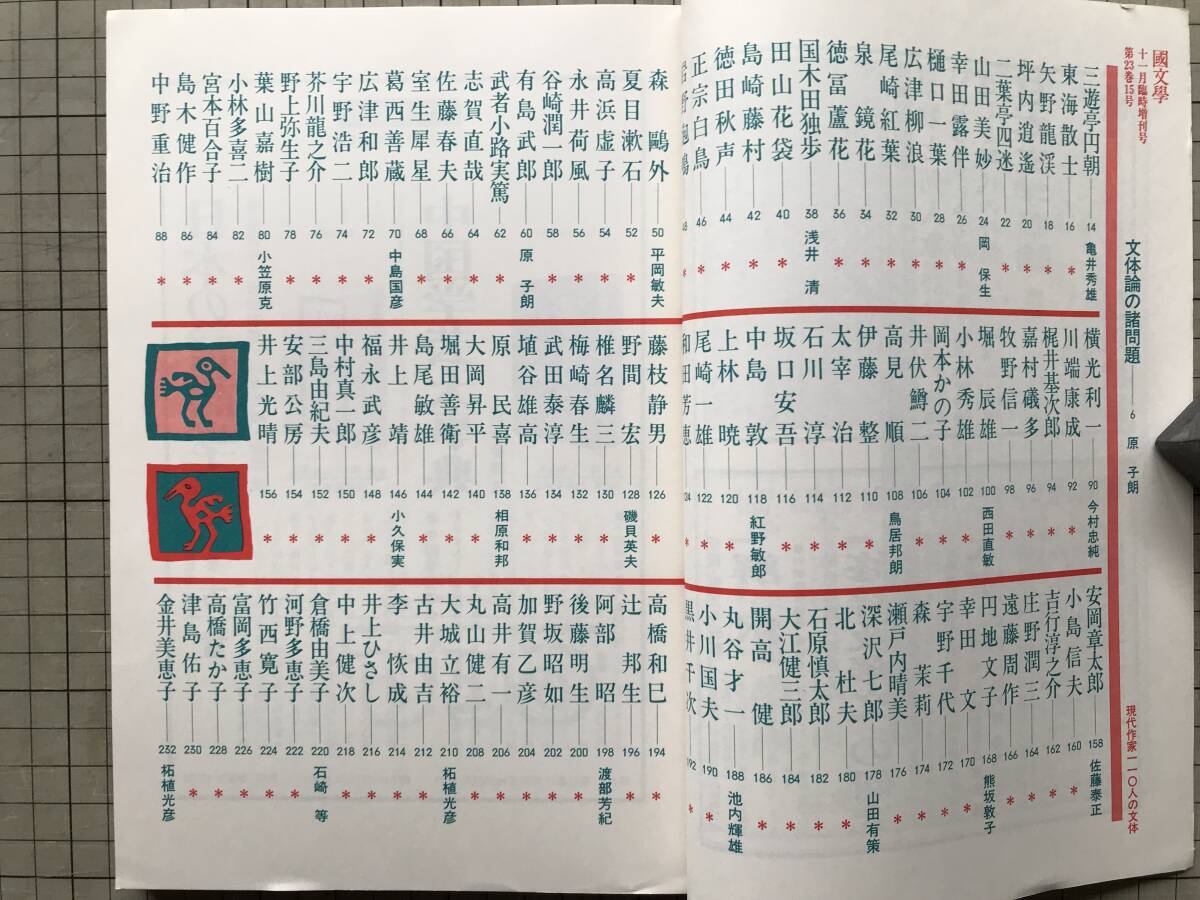 國文學
十一月臨時増刊号
第23巻15号
文体論の諸問題 6 原 子朗
現代作家一一〇人の文体
三遊亭円朝 14 亀井秀雄
東海散士 16 *
矢野龍渓 18 *
坪内逍遙 20 *
二葉亭四迷 22 *
山田美妙 24 岡 保生
幸田露伴 26 *
樋口一葉 28 *
広津柳浪 30 *
尾崎紅葉 32 *
泉 鏡花 34 *
徳冨蘆花 36 *
国木田独歩 38 浅井 清
田山花袋 40 *
島崎藤村 42 *
徳田秋声 44 *
正宗白鳥 46 *
岩野泡鳴 48 *
森 鷗外 50 平岡敏夫
夏目漱石 52 *
高浜虚子 54 *
永井荷風 56 *
谷崎潤一郎 58 *
有島武郎 60 原 子朗
武者小路実篤 62 *
志賀直哉 64 *
佐藤春夫 66 *
室生犀星 68 *
葛西善蔵 70 中島国彦
広津和郎 72 *
宇野浩二 74 *
芥川龍之介 76 *
野上弥生子 78 *
葉山嘉樹 80 小笠原克
小林多喜二 82 *
宮本百合子 84 *
島木健作 86 *
中野重治 88 *
横光利一 90 今村忠純
川端康成 92 *
梶井基次郎 94 *
嘉村礒多 96 *
牧野信一 98 *
堀 辰雄 100 西田直敏
小林秀雄 102 *
岡本かの子 104 *
井伏鱒二 106 *
高見 順 108 鳥居邦朗
伊藤 整 110 *
太宰 治 112 *
石川 淳 114 *
坂口安吾 116 *
中島 敦 118 紅野敏郎
上林 暁 120 *
尾崎一雄 122 *
和田芳恵 124 *
藤枝静男 126 *
野間 宏 128 磯貝英夫
椎名麟三 130 *
梅崎春生 132 *
武田泰淳 134 *
埴谷雄高 136 *
原 民喜 138 相原和邦
大岡昇平 140 *
堀田善衛 142 *
島尾敏雄 144 *
井上 靖 146 小久保実
福永武彦 148 *
中村真一郎 150 *
三島由紀夫 152 *
安部公房 154 *
井上光晴 156 *
安岡章太郎 158 佐藤泰正
小島信夫 160 *
吉行淳之介 162 *
庄野潤三 164 *
遠藤周作 166 *
円地文子 168 熊坂敦子
幸田 文 170 *
宇野千代 172 *
森 茉莉 174 *
瀬戸内晴美 176 *
深沢七郎 178 山田有策
北 杜夫 180 *
石原慎太郎 182 *
大江健三郎 184 *
開高 健 186 *
丸谷才一 188 池内輝雄
小川国夫 190 *
黒井千次 192 *
高橋和巳 194 *
辻 邦生 196 *
阿部 昭 198 渡部芳紀
後藤明生 200 *
野坂昭如 202 *
加賀乙彦 204 *
高井有一 206 *
丸山健二 208 *
大城立裕 210 柘植光彦
古井由吉 212 *
李 恢成 214 *
井上ひさし 216 *
中上健次 218 *
倉橋由美子 220 石崎 等
河野多恵子 222 *
竹西寛子 224 *
富岡多恵子 226 *
高橋たか子 228 *
津島佑子 230 *
金井美恵子 232 柘植光彦